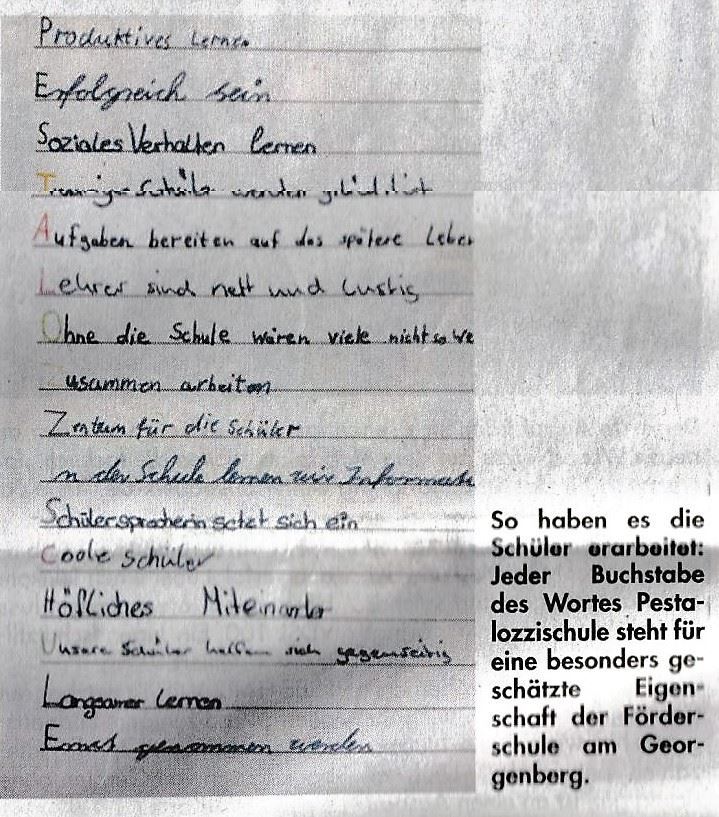 Produktives Lernen
Erfolgreich sein
Soziales Verhalten lernen
werden
Aufgaben bereiten auf das spätere Leben
Lehrer sind nett und lustig
Ohne die Schule wären viele nicht so we
usammen arbeiten
Zentrum für die Schüler
n der Schule lernen wir Informati
Schülersprecherin setzt sich ein
Coole Schüler
Höfliches Miteinander
Unsere Schüler helfen sich gegenseitig
Langsamer lernen
Ernst genommen werden
So haben es die
Schüler erarbeitet:
Jeder Buchstabe
des Wortes Pesta-
lozzischule steht für
eine besonders ge-
schätzte Eigen-
schaft der Förder-
schule am Geor-
genberg.